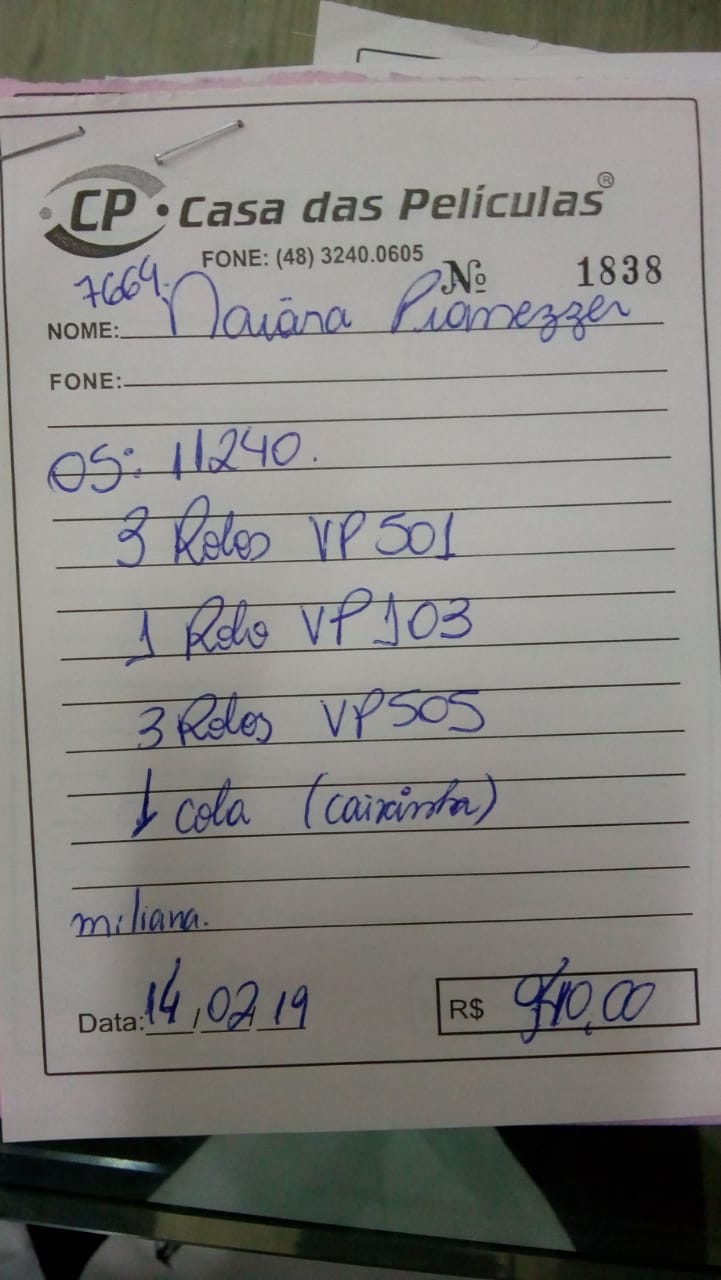 CP Casa das Películas®
FONE: (48) 3240.0605
Nº 1838
7664.
NOME: Naiãna
FONE:
OS: 11240.
3 Rolos VP 501
1 Rolo VP 103
3 Rolos VP 505
1 cola (caixinha)
miliana.
Data: 14/02/19
R$